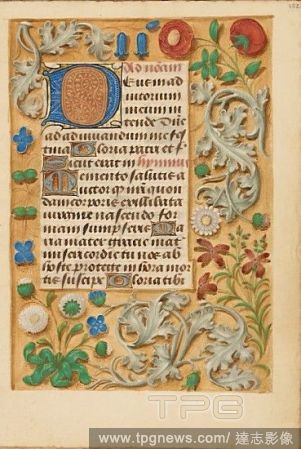 Ad nonam
Deus in ad
iutorium
meum in
tende Dn̄e
ad adiuuandum me fe
na Gloria patri et f
Sicut erat hymnus
Memento salutis a
uctor q̄ nr̄i quon
dam corporis ex illibata
virgine nascendo for
mam sumpseris Ma
ria mater gracie mat
ter m̄cordie tu nos ab
hoste protege in hora mor
tis suscipe Gloria tibi
TPG
www.tpgnews.com/ 達志影像